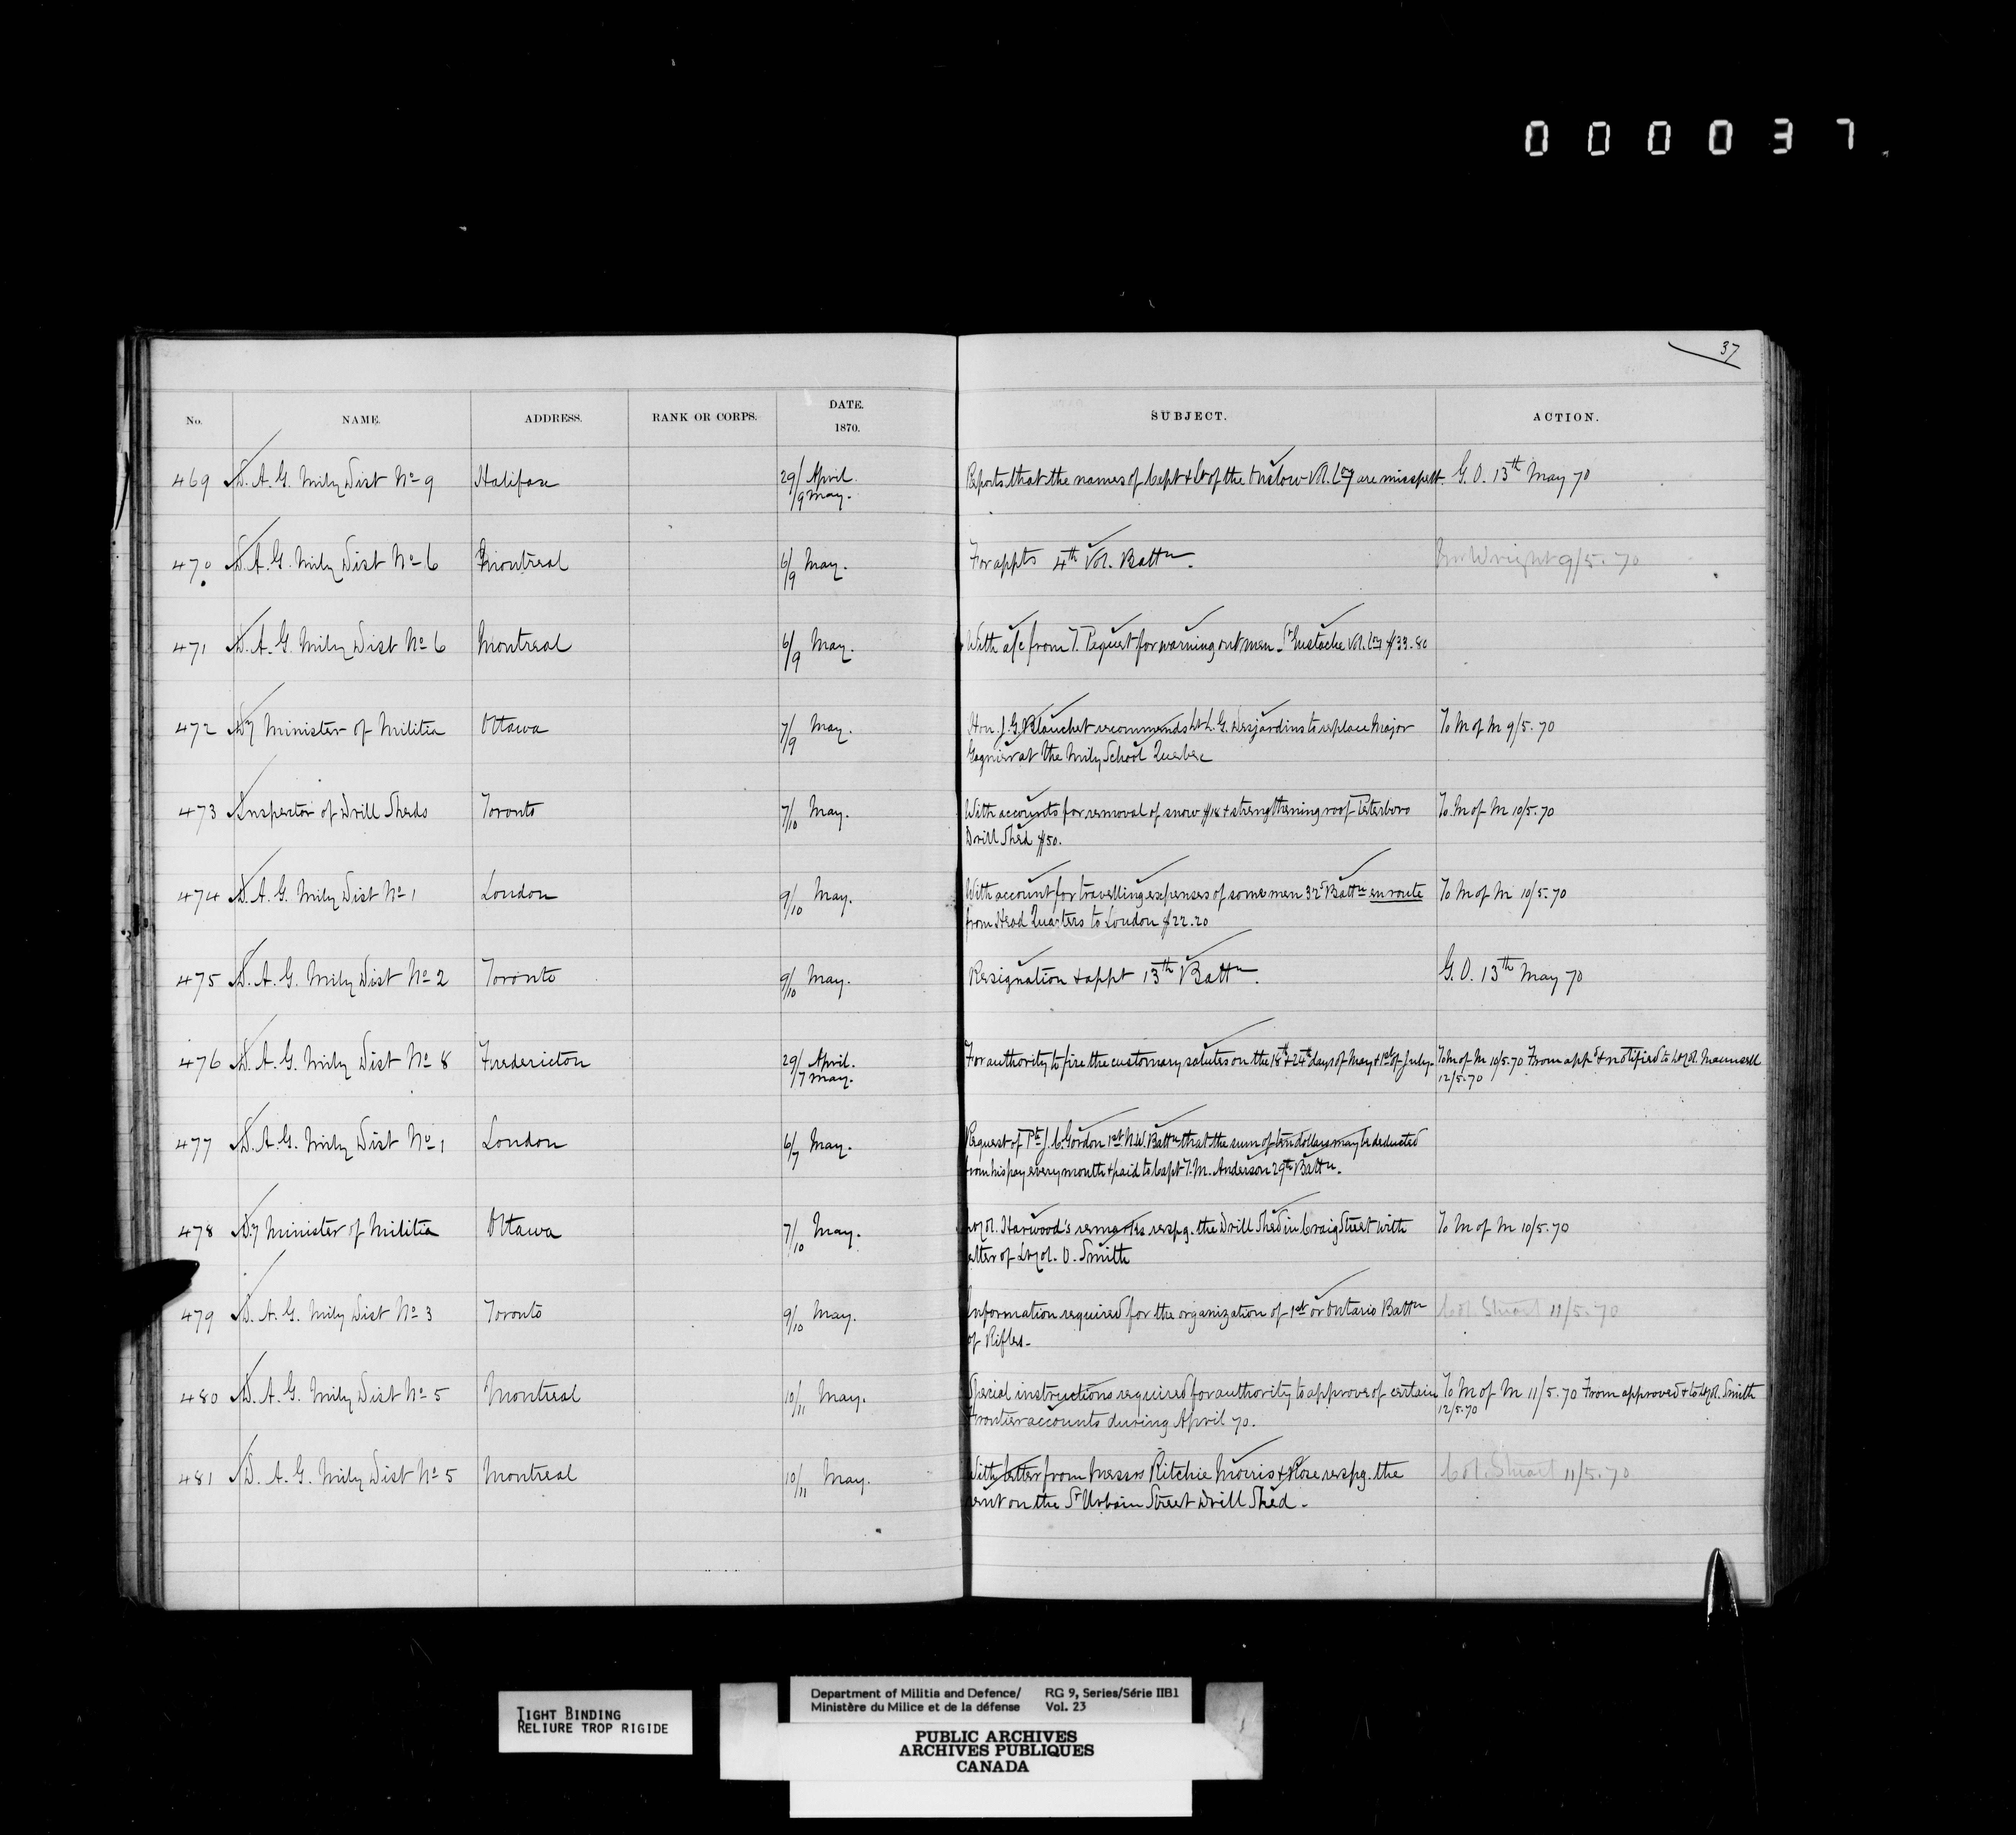 000037
37
No. NAME. ADDRESS. RANK OR CORPS. DATE. 1870. SUBJECT. ACTION.
469 D. A. G. Mily Dist No 9 Halifax 29/ April /9 May. Reports that the names of Capt & Lt of the Onslow Vol. Coy are misspelt. G. O. 13th May 70
470 D. A. G. Mily Dist No 6 Montreal 6/9 May. For appts 4th Vol. Battn. Wright 9/5.70
471 D. A. G. Mily Dist No 6 Montreal 6/9 May. With a/c from T. Pequet for warning out men St Eustache Vol. Coy $33.80
472 Dy Minister of Militia Ottawa 7/9 May. Hon. J. G. Blanchet recommends Lt L. G. Desjardins to replace Major
Gagnier at the Mily School Quebec To M of M 9/5.70
473 Inspector of Drill Sheds Toronto 7/10 May. With accounts for removal of snow $18 & strengthening roof Peterboro
Drill Shed $50. To M of M 10/5.70
474 D. A. G. Mily Dist No 1 London 9/10 May. With account for travelling expenses of some men 32d Battn en route
from Head Quarters to London $22.20 To M of M 10/5.70
475 D. A. G. Mily Dist No 2 Toronto 9/10 May. Resignation & appt 13th Battn. G. O. 13th May 70
476 D. A. G. Mily Dist No 8 Fredericton 29/ April. /7 May. For authority to fire the customary salutes on the 18th & 24th days of May & 1st of July. To M of M 10/5.70 From appd & notified to Lt Col. Maunsell
12/5.70
477 D. A. G. Mily Dist No 1 London 6/7 May. Request of Pte J. C. Gordon 1st N.W. Battn that the sum of ten dollars may be deducted
from his pay every month & paid to Capt T. M. Anderson 29th Battn.
478 Dy Minister of Militia Ottawa 7/10 May. Lt Col. Harwood's remarks respg. the Drill Shed in Craig Street with
letter of Lt Col. O. Smith To M of M 10/5.70
479 D. A. G. Mily Dist No 3 Toronto 9/10 May. Information required for the organization of 1st or Ontario Battn
of Rifles. Col. Stuart 11/5.70
480 D. A. G. Mily Dist No 5 Montreal 10/11 May. Special instructions required for authority to approve of certain
Frontier accounts during April 70. To M of M 11/5.70 From approved & to Lt Col. Smith
12/5.70
481 D. A. G. Mily Dist No 5 Montreal 10/11 May. With letter from Messrs Ritchie Morris & Rose respg. the
rent on the St Urbain Street Drill Shed. Col. Stuart 11/5.70
TIGHT BINDING
RELIURE TROP RIGIDE
Department of Militia and Defence/ RG 9, Series/Série IIB1
Ministère du Milice et de la défense Vol. 23
PUBLIC ARCHIVES
ARCHIVES PUBLIQUES
CANADA